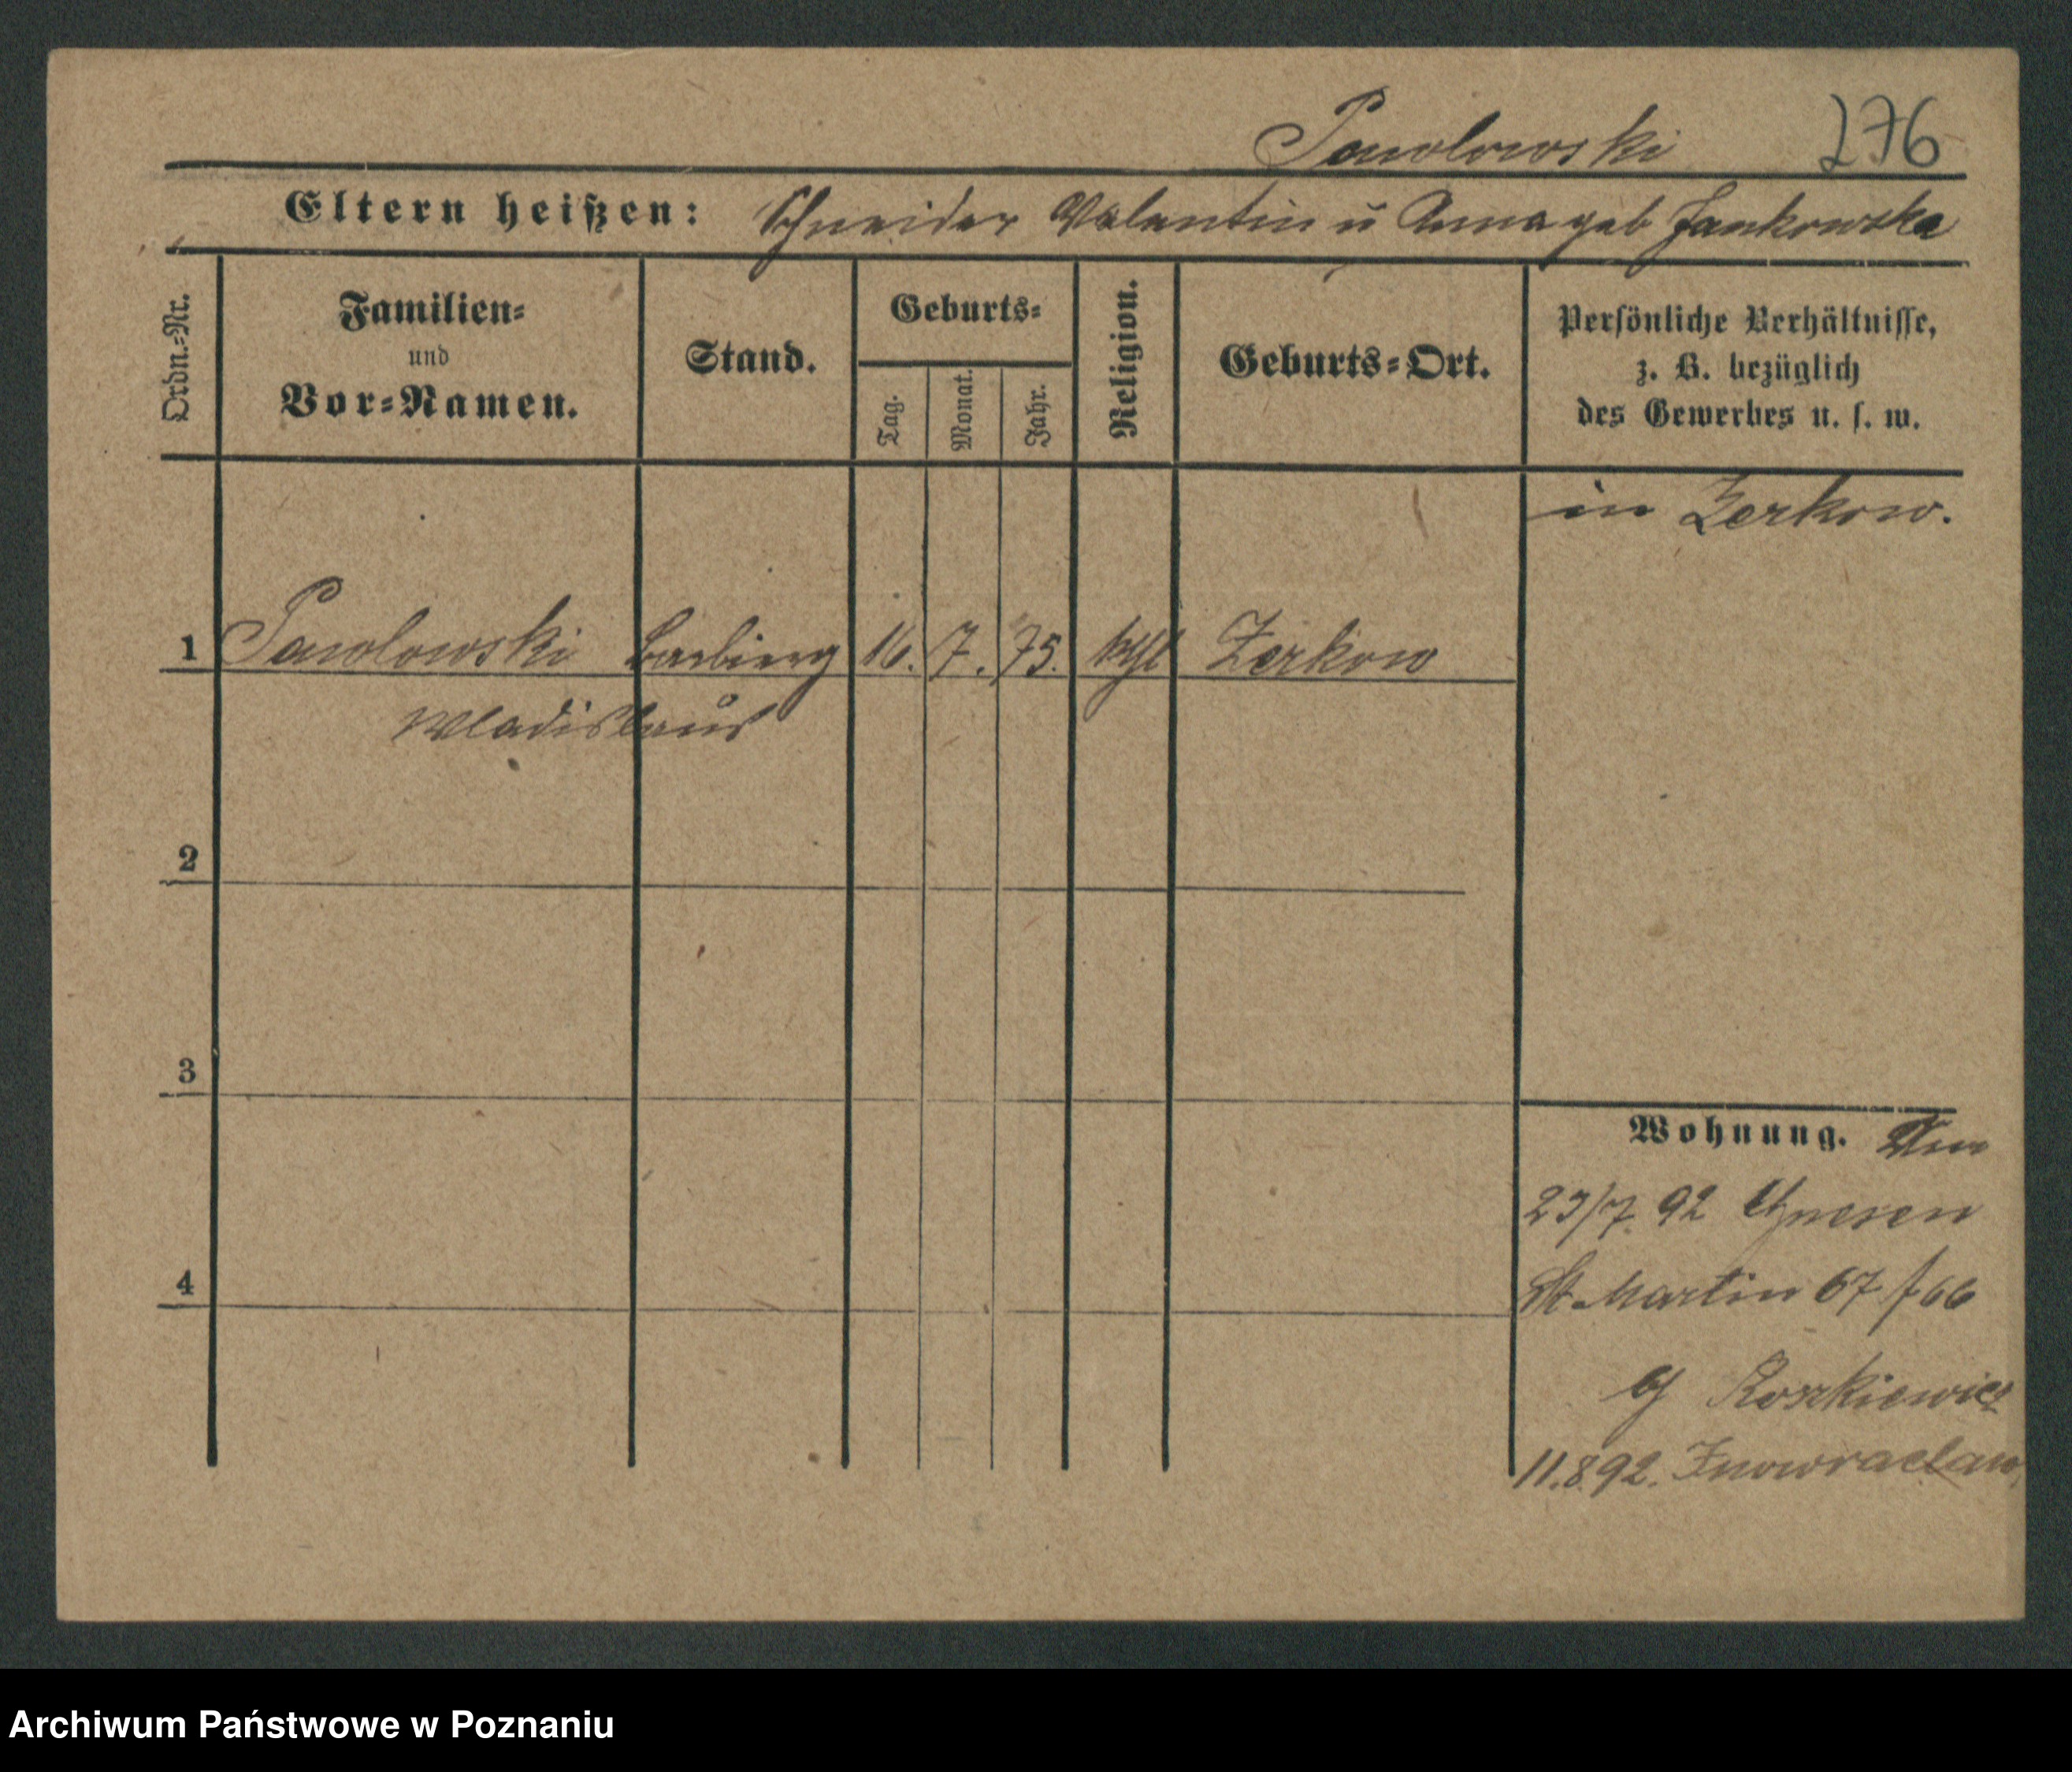 Pawlowski 276
Eltern heißen: Schneider Valentin u Anna geb Jankowska
Ordn.-Nr.
Familien-
und
Vor-Namen.
Stand.
Geburts-
Tag.
Monat.
Jahr.
Religion.
Geburts-Ort.
Persönliche Verhältnisse,
z. B. bezüglich
des Gewerbes u. s. w.
in Zerkow.
1 Pawlowski 16. 7. 75. kth Zerkow
Wladislaus
2
3
Wohnung.
23/7. 92 Gnesen
4
St. Martin 67 / 66
Roszkiewicz
11.8.92. Inowraclaw
Archiwum Państwowe w Poznaniu